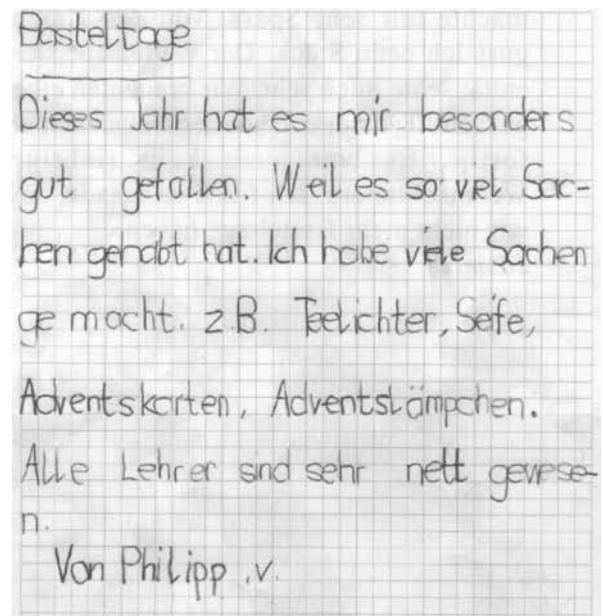 Basteltage
Dieses Jahr hat es mir besonders
gut gefallen. Weil es so viel Sac-
hen gehabt hat. Ich habe viele Sachen
ge macht. z.B. Teelichter, Seife,
Adventskarten, Adventslämpchen.
Alle Lehrer sind sehr nett gewese-
n.
Von Philipp .v.